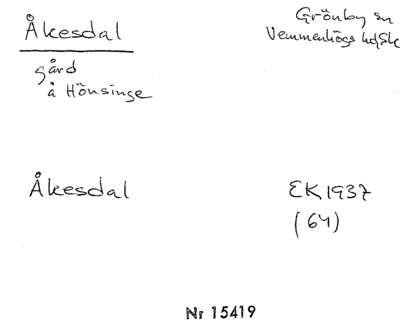 Åkesdal
Grönby sn
Vemmenhögs hd, Sk
gård
å Hönsinge
Åkesdal
EK 1937
(64)
Nr 15419